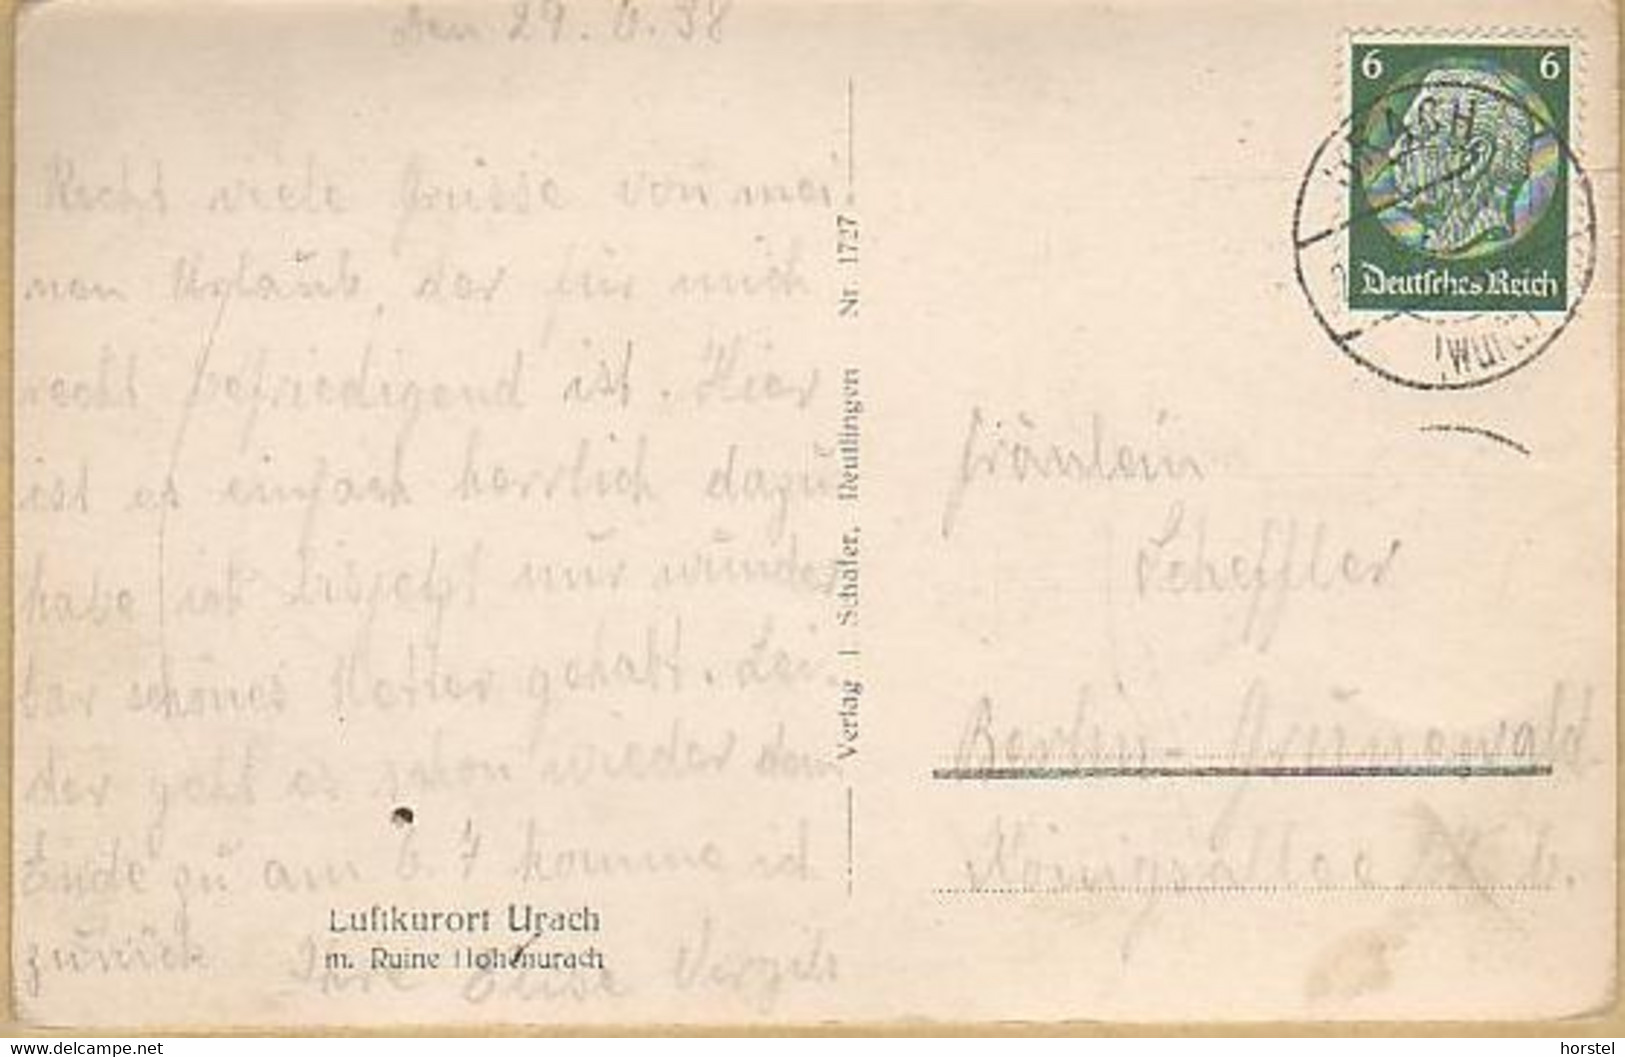 den 29. 6. 38
Recht viele Grüsse von mei-
nen Urlaub, der für mich
recht befriedigend ist. Hier
ist es einfach herrlich dazu
habe ich bisjetzt nur wunder
bar schönes Wetter gehabt. Lei-
der geht es schon wieder dem
Ende zu am 6. 7 komme ich
zurück. Ihre Elise
Luftkurort Urach
m. Ruine Hohenurach
Verlag J. Schäfer, Reutlingen Nr. 1727
6 6
Deutsches Reich
URACH
(Württ)
Fräulein
Scheffler
Berlin-Grunewald
Königsallee
delcampe.net
horstel